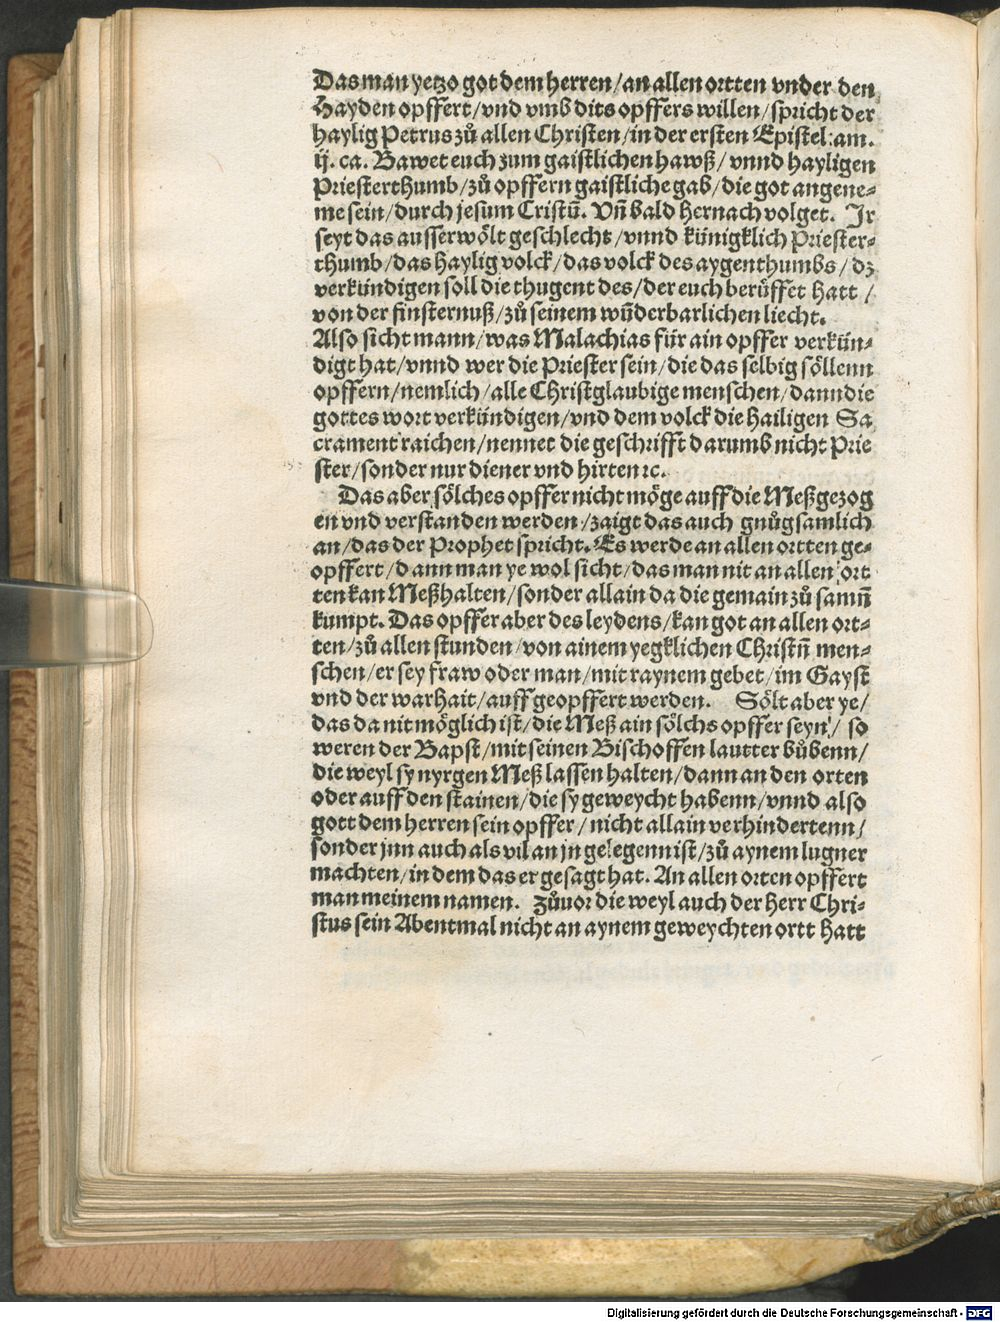 Das man yetzo got dem herren/an allen ortten vnder den
Hayden opffert/vnd vmb dits opffers willen/spricht der
haylig Petrus zů allen Christen/in der ersten Epistel:am.
ij. ca. Bawet euch zum gaistlichen hawß/vnnd hayligen
Priesterthumb/zů opffern gaistliche gab/die got angene⸗
me sein/durch jesum Cristū. Vñ bald hernach volget. Jr
seyt das ausserwölt geschlecht/vnnd künigklich Priester⸗
thumb/das haylig volck/das volck des aygenthumbs/dz
verkündigen soll die thugent des/der euch berůffet hatt/
von der finsternuß/zů seinem wūderbarlichen liecht.
Also sicht mann/was Malachias für ain opffer verkün⸗
digt hat/vnnd wer die Priester sein/die das selbig söllenn
opffern/nemlich/alle Christglaubige menschen/dann die
gottes wort verkündigen/vnd dem volck die Hailigen Sa
crament raichen/nennet die geschrifft darumb nicht Prie
ster/sonder nur diener vnd hirten ꝛc.
Das aber sölches opffer nicht möge auff die Meß gezog
en vnd verstanden werden/zaigt das auch gnůgsamlich
an/das der Prophet spricht. Es werde an allen ortten ge⸗
opffert/dann man ye wol sicht/das man nit an allen ort
ten kan Meß halten/sonder allain da die gemain zů samñ
kumpt. Das opffer aber des leydens/kan got an allen ort⸗
ten/zů allen stunden/von ainem yegklichen Christñ men⸗
schen/er sey fraw oder man/mit raynem gebet/im Gayst
vnd der warhait/auff geopffert werden. Sölt aber ye/
das da nit möglich ist/die Meß ain sölchs opffer seyn/so
weren der Bapst/mit seinen Bischoffen lautter bůbenn/
die weyl sy nyrgen Meß lassen halten/dann an den orten
oder auff den stainen/die sy geweycht habenn/vnnd also
gott dem herren sein opffer/nicht allain verhindertenn/
sonder jnn auch als vil an jn gelegenn ist/zů aynem lugner
machten/in dem das er gesagt hat. An allen orten opffert
man meinem namen. Zůuor die weyl auch der Herr Chri⸗
stus sein Abentmal nicht an aynem geweychten ortt hatt
Digitalisierung gefördert durch die Deutsche Forschungsgemeinschaft - DFG